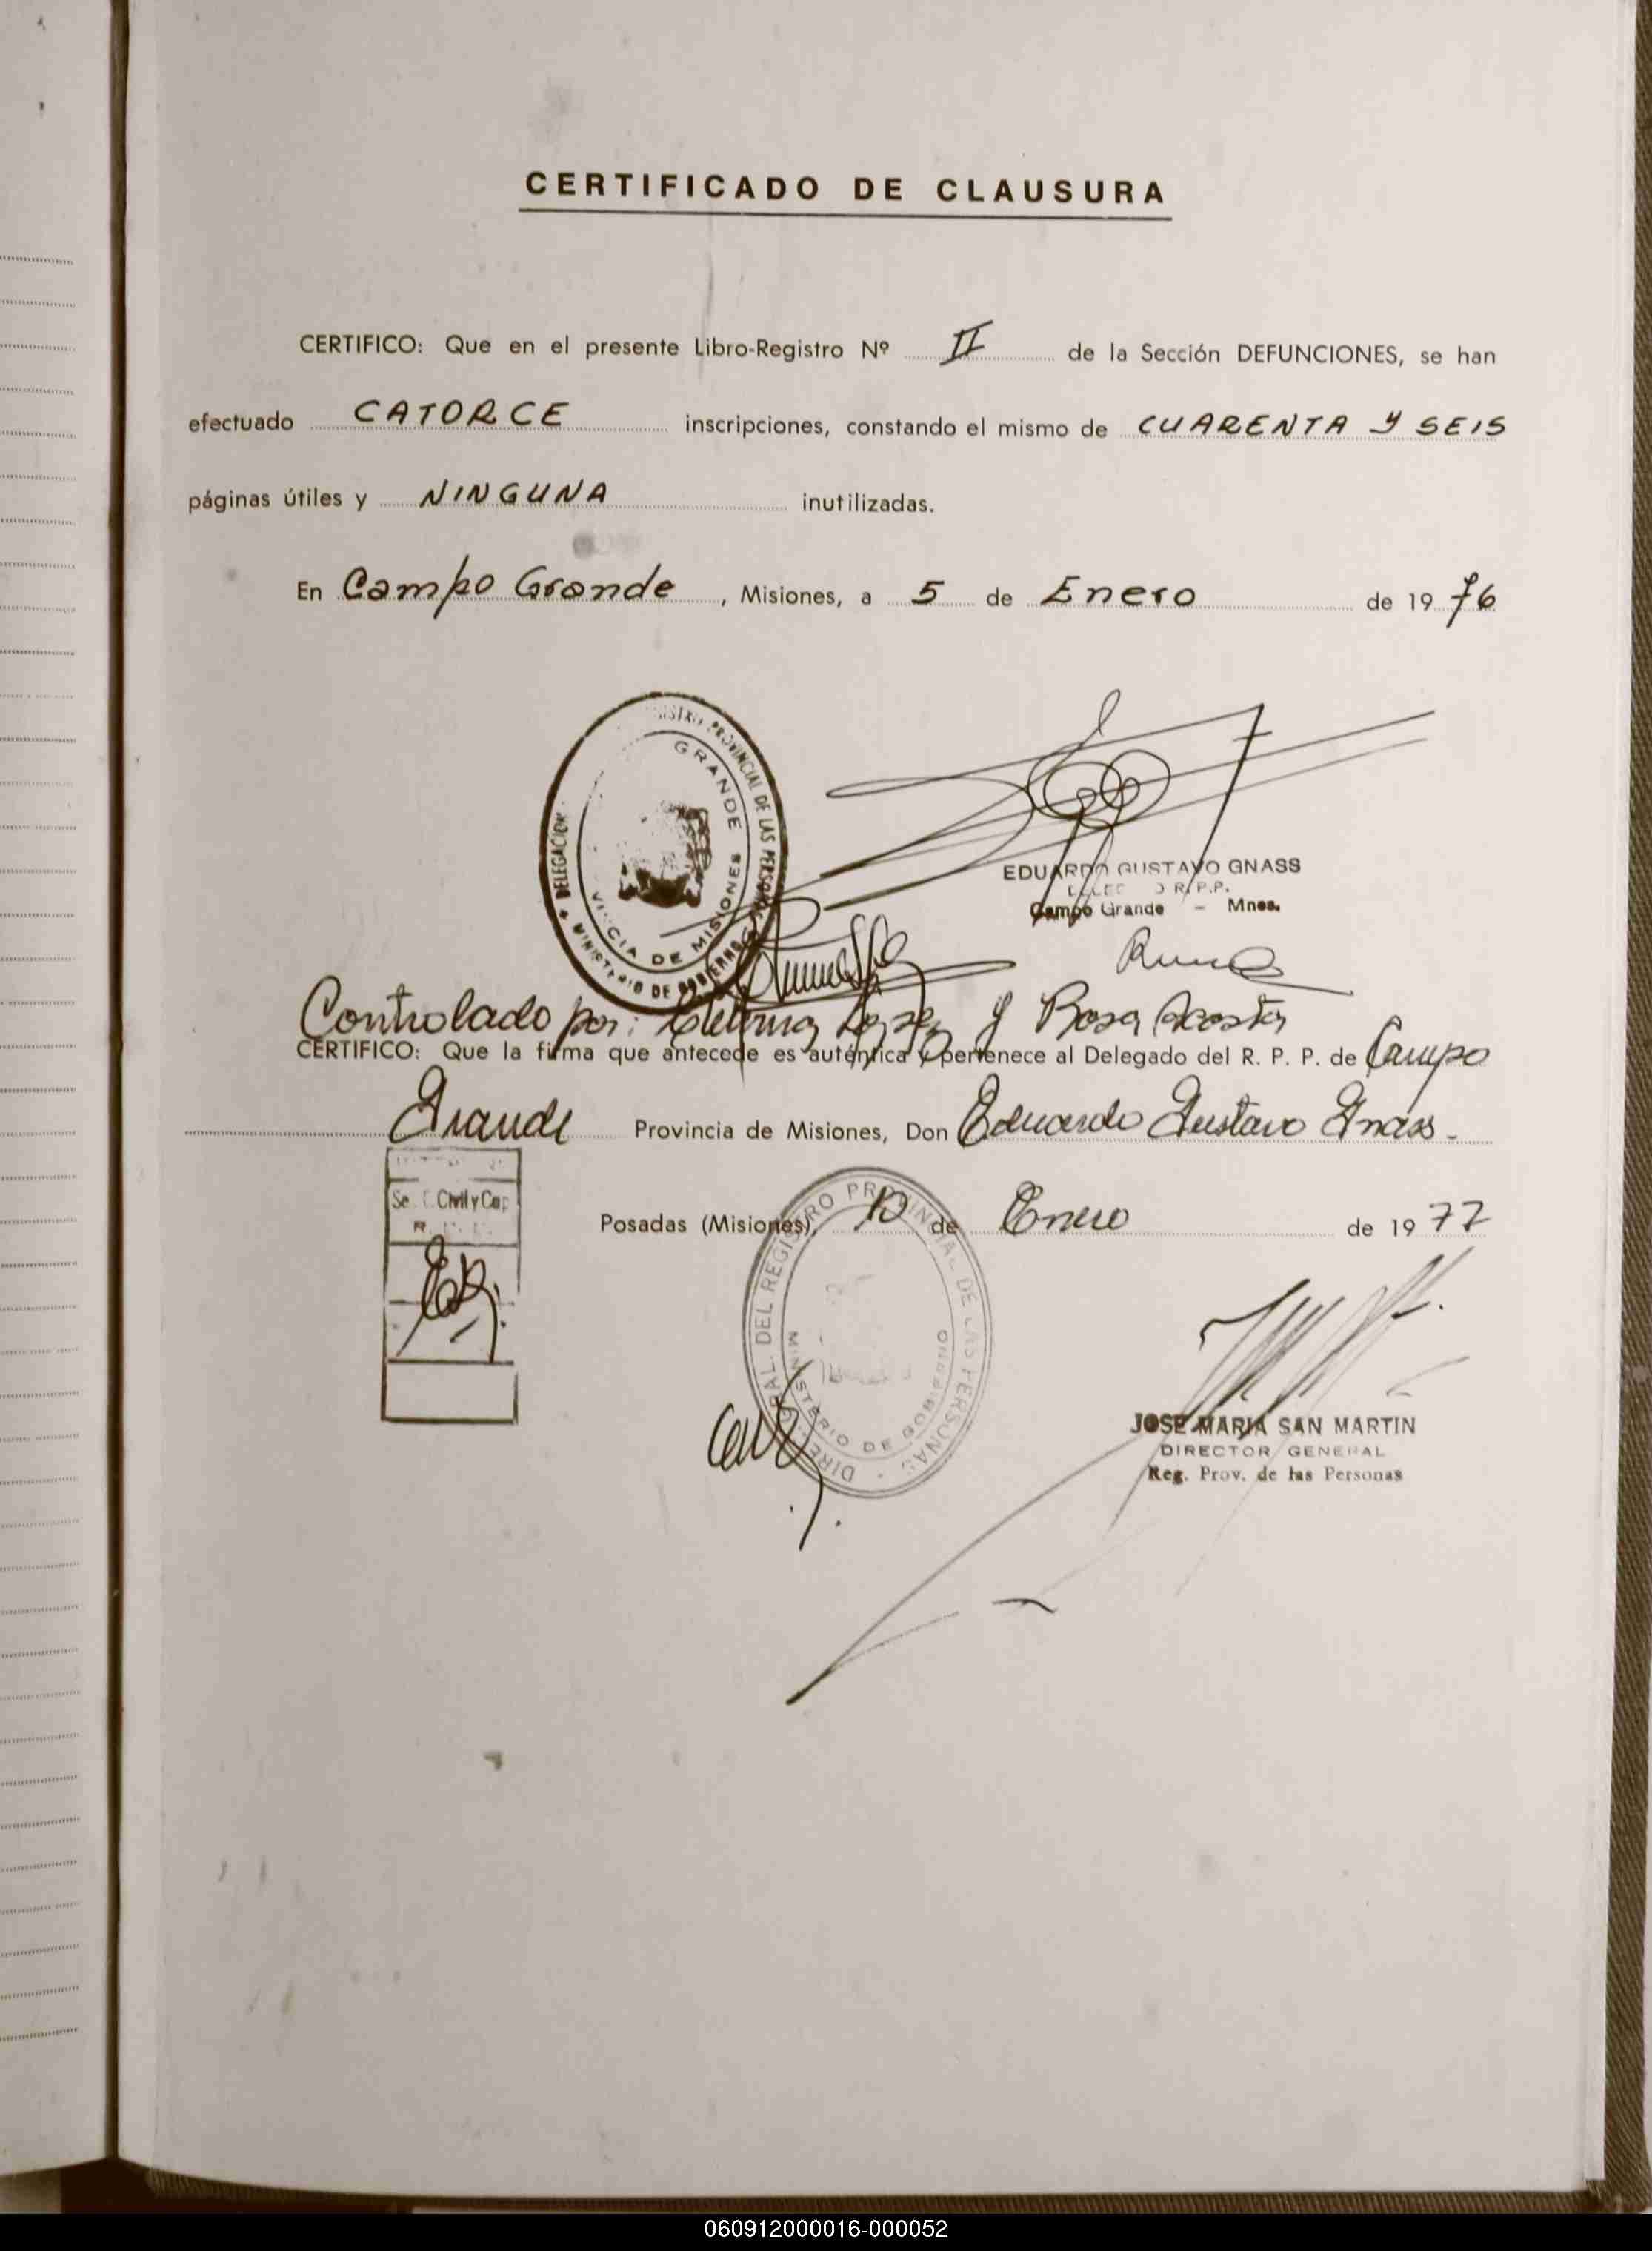 CERTIFICADO DE CLAUSURA
CERTIFICO: Que en el presente Libro-Registro Nº II de la Sección DEFUNCIONES, se han
efectuado CATORCE inscripciones, constando el mismo de CUARENTA Y SEIS
páginas útiles y NINGUNA inutilizadas.
En Campo Grande, Misiones, a 5 de Enero de 1976
DELEGACION PROVINCIAL DE LAS PERSONAS
GRANDE
DE MISIONES
MINISTERIO DE GOBIERNO
EDUARDO GUSTAVO GNASS
R.P.P.
Campo Grande - Mnes.
Controlado por: López y Rosa Acosta
CERTIFICO: Que la firma que antecede es auténtica y pertenece al Delegado del R. P. P. de Campo
Grande Provincia de Misiones, Don Eduardo Gustavo Gnass.
Civil y Cap
Posadas (Misiones), de Enero de 1977
DIREC. GRAL. DEL REGISTRO PROVINCIAL DE LAS PERSONAS
MINISTERIO DE GOBIERNO
JOSE MARIA SAN MARTIN
DIRECTOR GENERAL
Reg. Prov. de las Personas
060912000016-000052